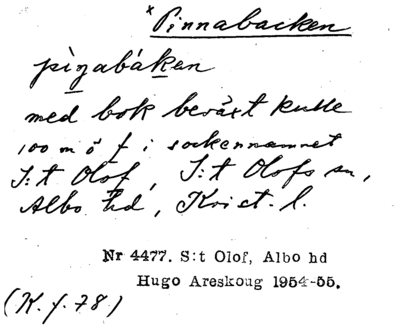 × Pinnabacken
pìn̠abák̠en
med bok beväxt kulle
100 m ö f i sockennamnet
S:t Olof, S:t Olofs sn,
Albo hd, Krist. l.
Nr 4477. S:t Olof, Albo hd
Hugo Areskoug 1954-55.
(K. f. 78)